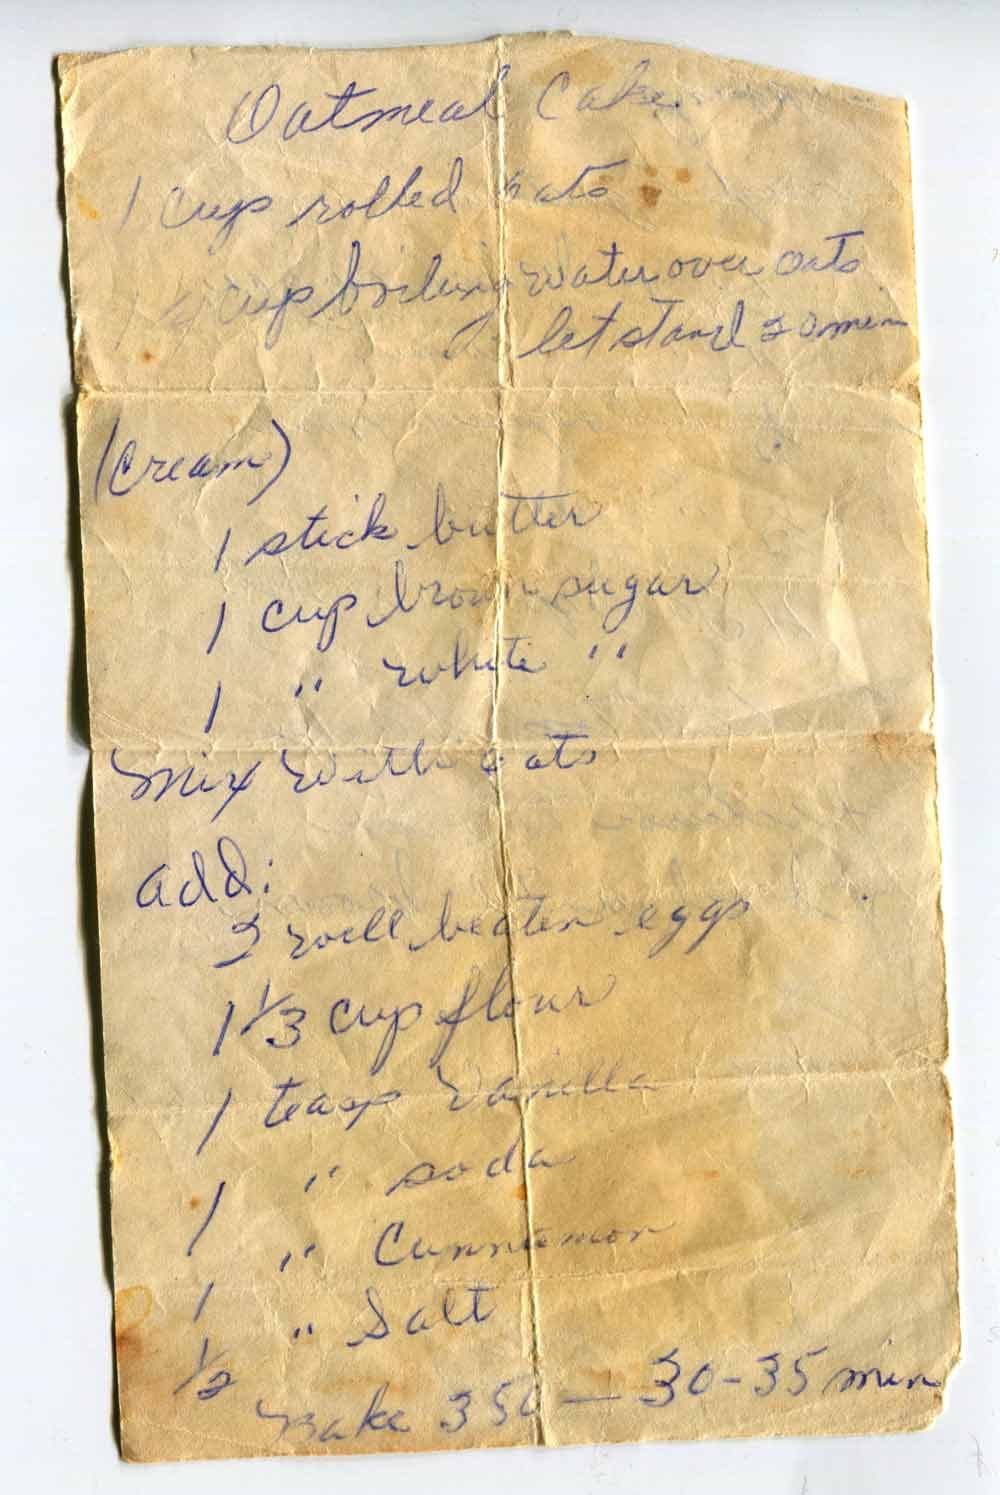 Oatmeal Cake
1 cup rolled oats
cup boiling water over oats
let stand 20 min
(Cream)
1 stick butter
1 cup brown sugar
1 " white "
Mix with oats
add:
2 well beaten eggs
1 1/3 cup flour
1 teasp vanilla
1 " soda
1 " Cinnamon
1/2 " Salt
Bake 350 — 30-35 min